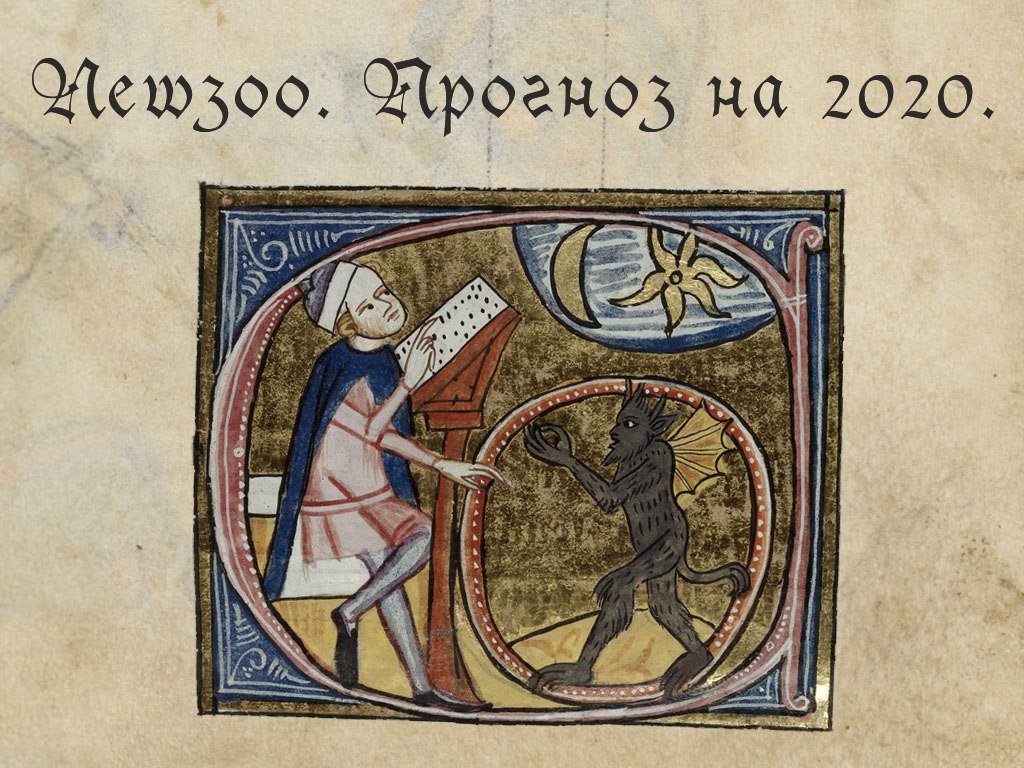 Newzoo. Прогноз на 2020.